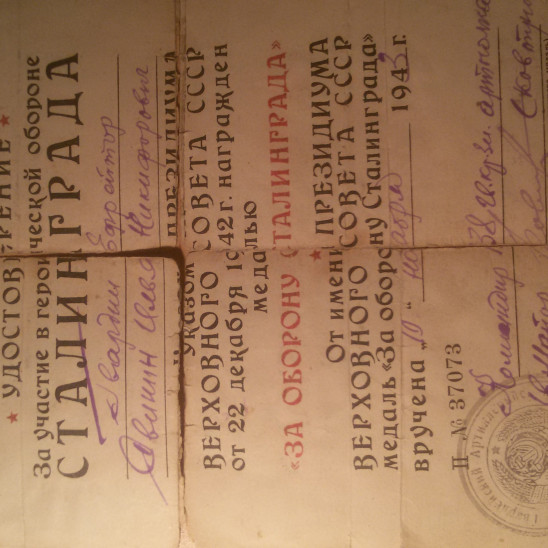 ★ УДОСТОВЕРЕНИЕ ★
За участие в героической обороне
СТАЛИНГРАДА
Гвардии Ефрейтор
Илья Никифорович
УКАЗОМ ПРЕЗИДИУМА
ВЕРХОВНОГО СОВЕТА СССР
от 22 декабря 1942 г. награжден
медалью
«ЗА ОБОРОНУ СТАЛИНГРАДА»
От имени ★ ПРЕЗИДИУМА
ВЕРХОВНОГО СОВЕТА СССР
медаль «За оборону Сталинграда»
вручена „10“ 1943 г.
П № 37073
Командир гв.
Гв. Майор
Гвардейский